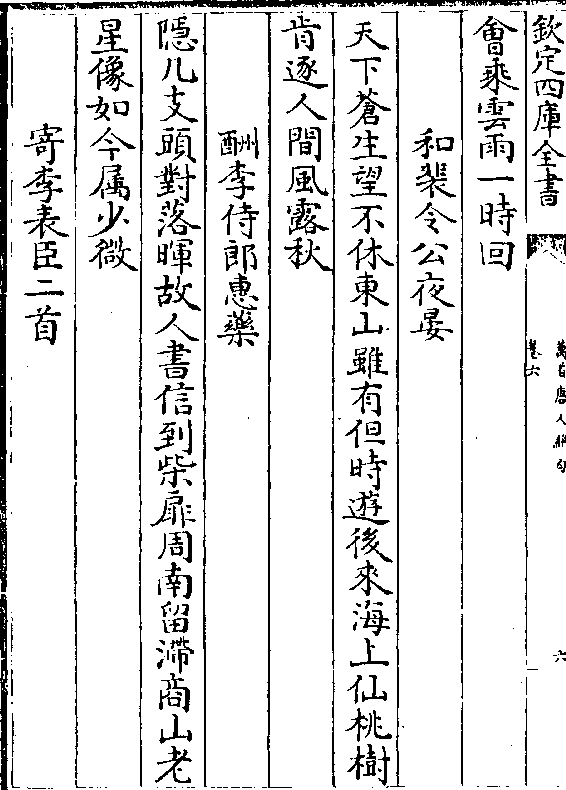 欽定四庫全書
萬首唐人絶句
卷六
六
會乘雲雨一時回
和裴令公夜宴
天下蒼生望不休東山雖有但時遊後來海上仙桃樹
肯逐人間風露秋
酬李侍郎惠藥
隱几支頭對落暉故人書信到柴扉周南留滯商山老
星像如今属少微
寄李表臣二首